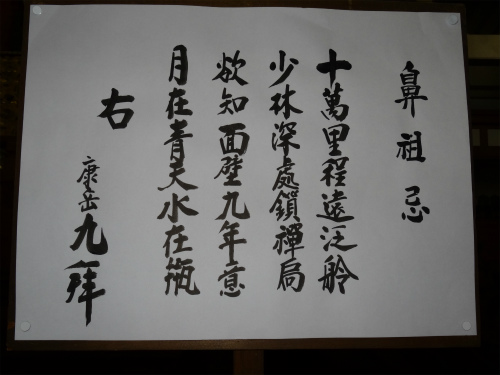 鼻祖忌
十萬里程遠泛舲
少林深處鎖禪扃
欲知面壁九年意
月在青天水在瓶
右
康岳九拜